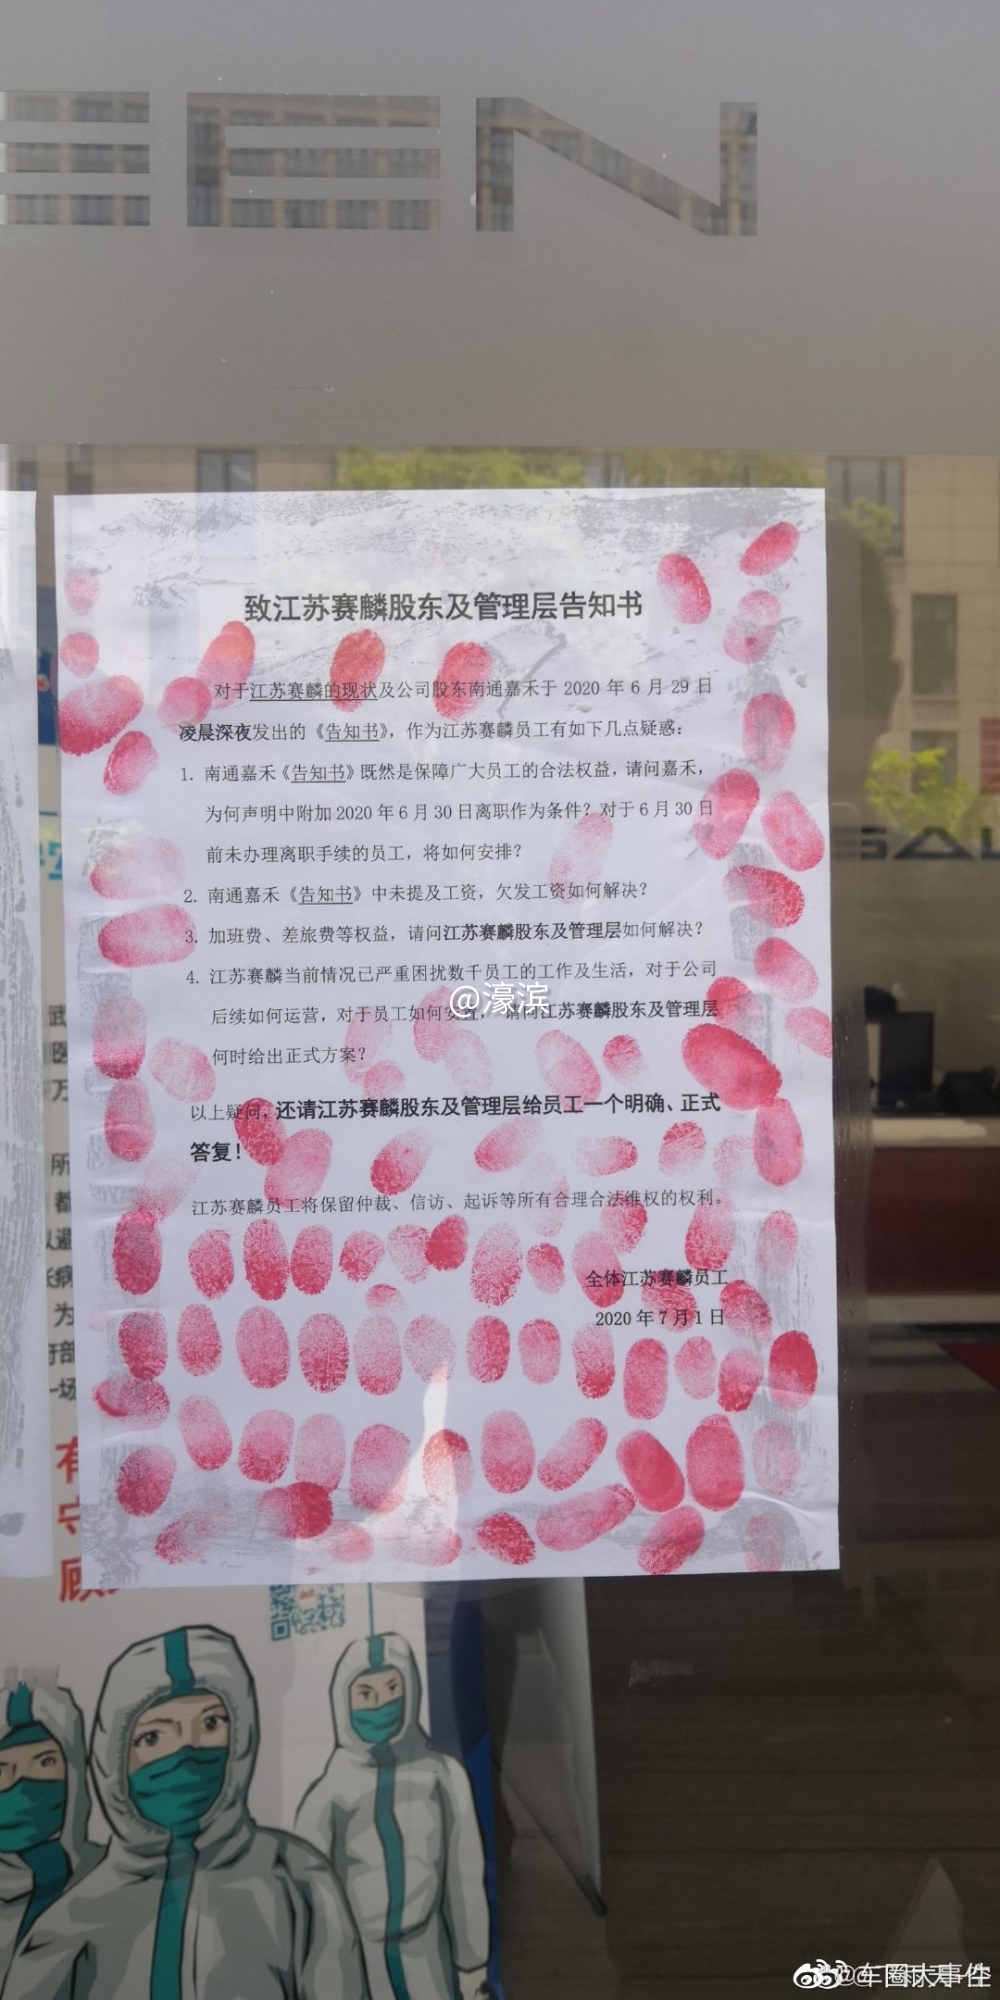 EEN
致江苏赛麟股东及管理层告知书
对于江苏赛麟的现状及公司股东南通嘉禾于 2020 年 6 月 29 日
凌晨深夜发出的《告知书》，作为江苏赛麟员工有如下几点疑惑：
1. 南通嘉禾《告知书》既然是保障广大员工的合法权益，请问嘉禾，
为何声明中附加 2020 年 6 月 30 日离职作为条件？对于 6 月 30 日
前未办理离职手续的员工，将如何安排？
2. 南通嘉禾《告知书》中未提及工资，欠发工资如何解决？
3. 加班费、差旅费等权益，请问江苏赛麟股东及管理层如何解决？
4. 江苏赛麟当前情况已严重困扰数千员工的工作及生活，对于公司
@濠滨
后续如何运营，对于员工如何安置，请问江苏赛麟股东及管理层
何时给出正式方案？
以上疑问，还请江苏赛麟股东及管理层给员工一个明确、正式
答复！
江苏赛麟员工将保留仲裁、信访、起诉等所有合理合法维权的权利。
全体江苏赛麟员工
2020 年 7 月 1 日
SAL
武
医
万
所
都
为
有
守
顾
@车圈大事件